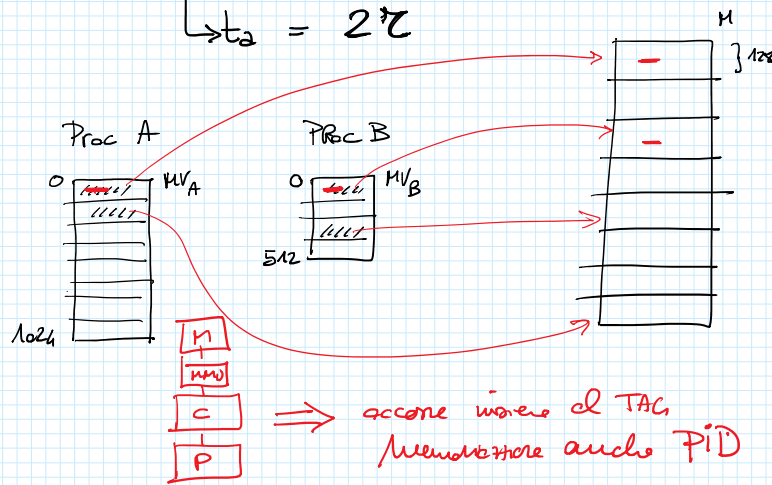 ta = 2τ
M
128
Proc A
PROC B
0
MVA
0
MVB
512
1024
M
MMU
C
P
occorre insieme al TAG
Memorizzare anche PiD